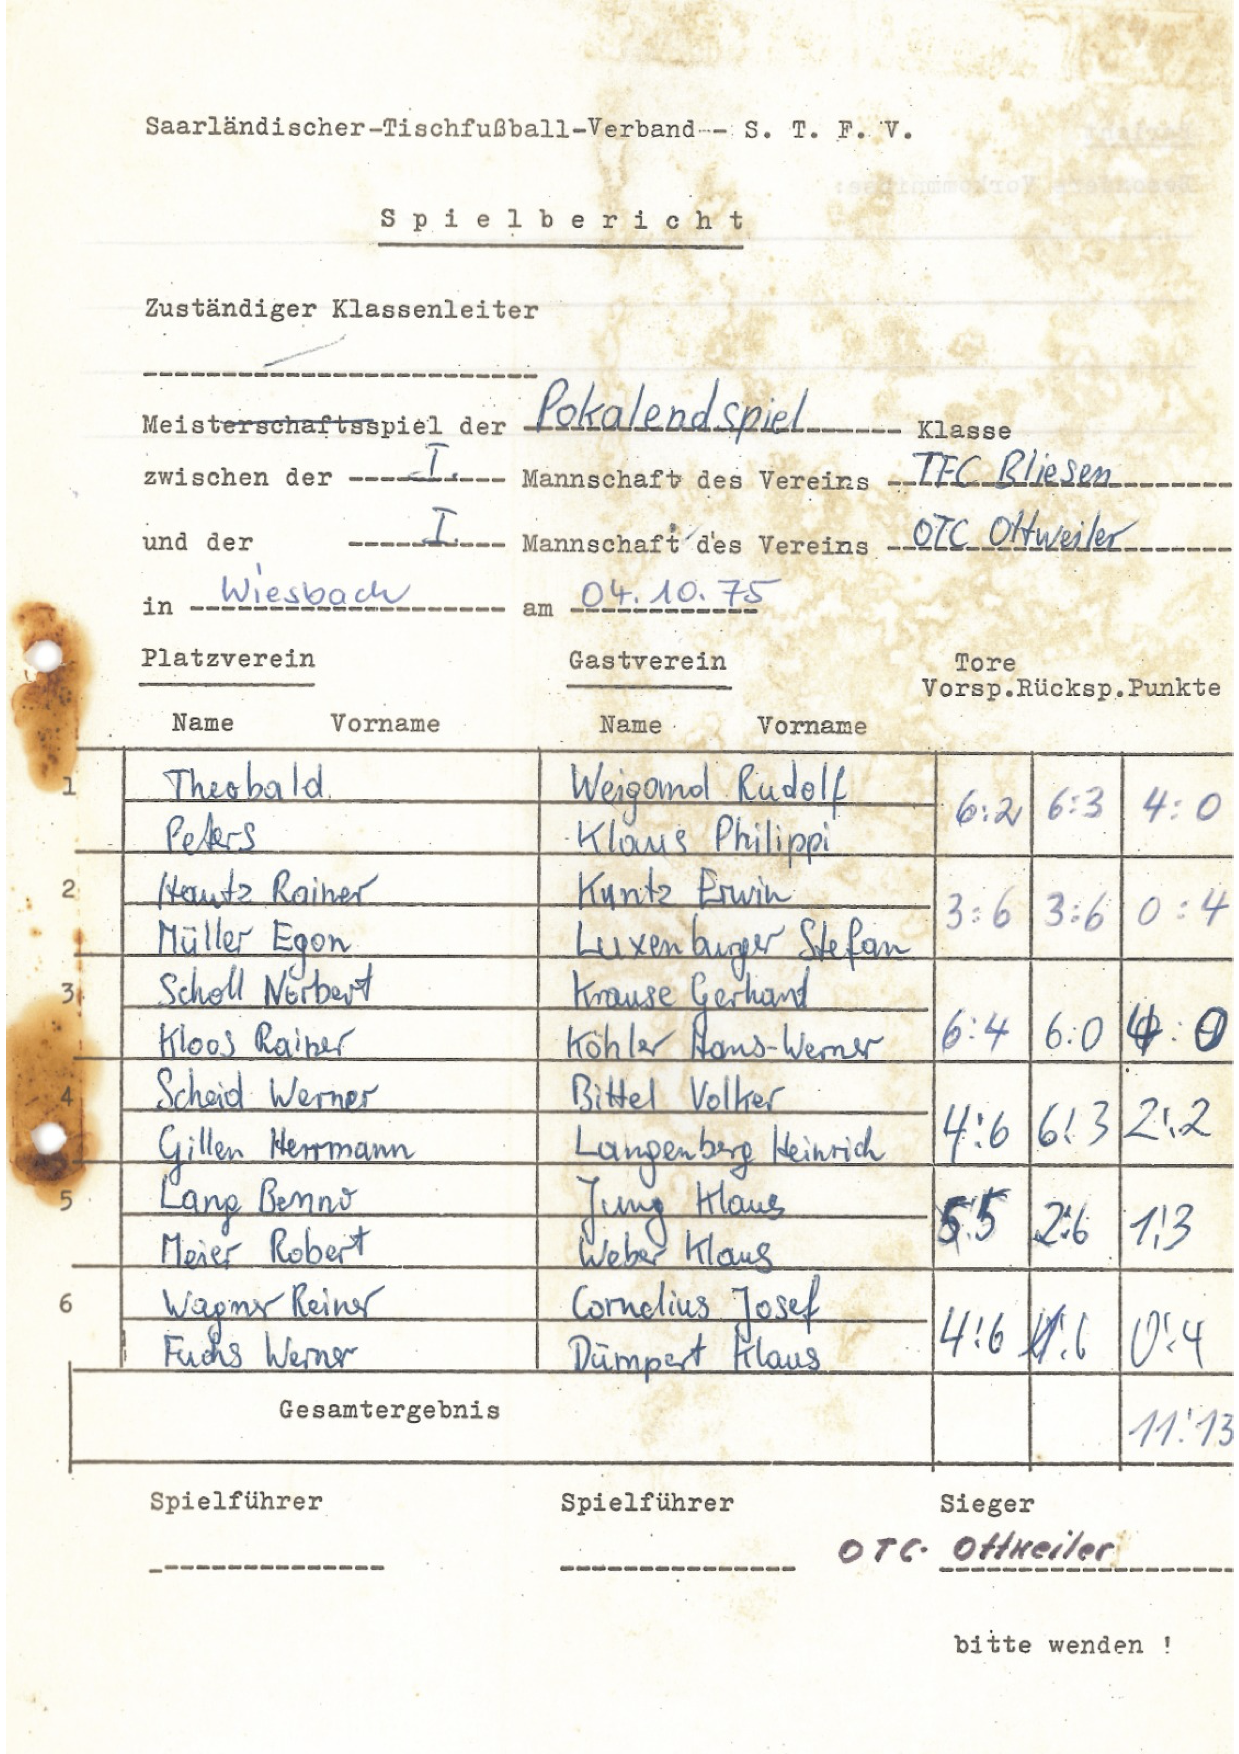 Saarländischer-Tischfußball-Verband-- S. T. F. V.
Spielbericht
Zuständiger Klassenleiter
Meisterschaftsspiel der Pokalendspiel Klasse
zwischen der I. Mannschaft des Vereins TFC Bliesen
und der I. Mannschaft des Vereins OTC Ottweiler
in Wiesbach am 04.10.75
Platzverein Gastverein Tore
Vorsp. Rücksp. Punkte
Name Vorname Name Vorname
1 Theobald Weigand Rudolf 6:2 6:3 4:0
Peters Klaus Philippi
2 Hautz Rainer Kuntz Erwin 3:6 3:6 0:4
Müller Egon Luxenburger Stefan
3 Scholl Norbert Krause Gerhard 6:4 6:0 4:0
Kloos Rainer Köhler Hans-Werner
4 Scheid Werner Bittel Volker 4:6 6:3 2:2
Gillen Herrmann Langenberg Heinrich
5 Lang Benno Jung Klaus 5:5 2:6 1:3
Meier Robert Weber Klaus
6 Wagner Reiner Cornelius Josef 4:6 0:4
Fuchs Werner Dümpert Klaus
Gesamtergebnis 11:13
Spielführer Spielführer Sieger
OTC Ottweiler
bitte wenden !